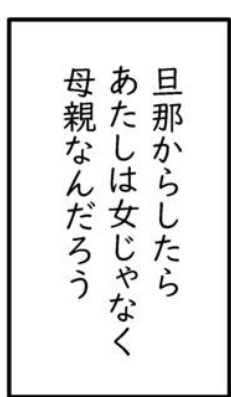 旦那からしたら
あたしは女じゃなく
母親なんだろう